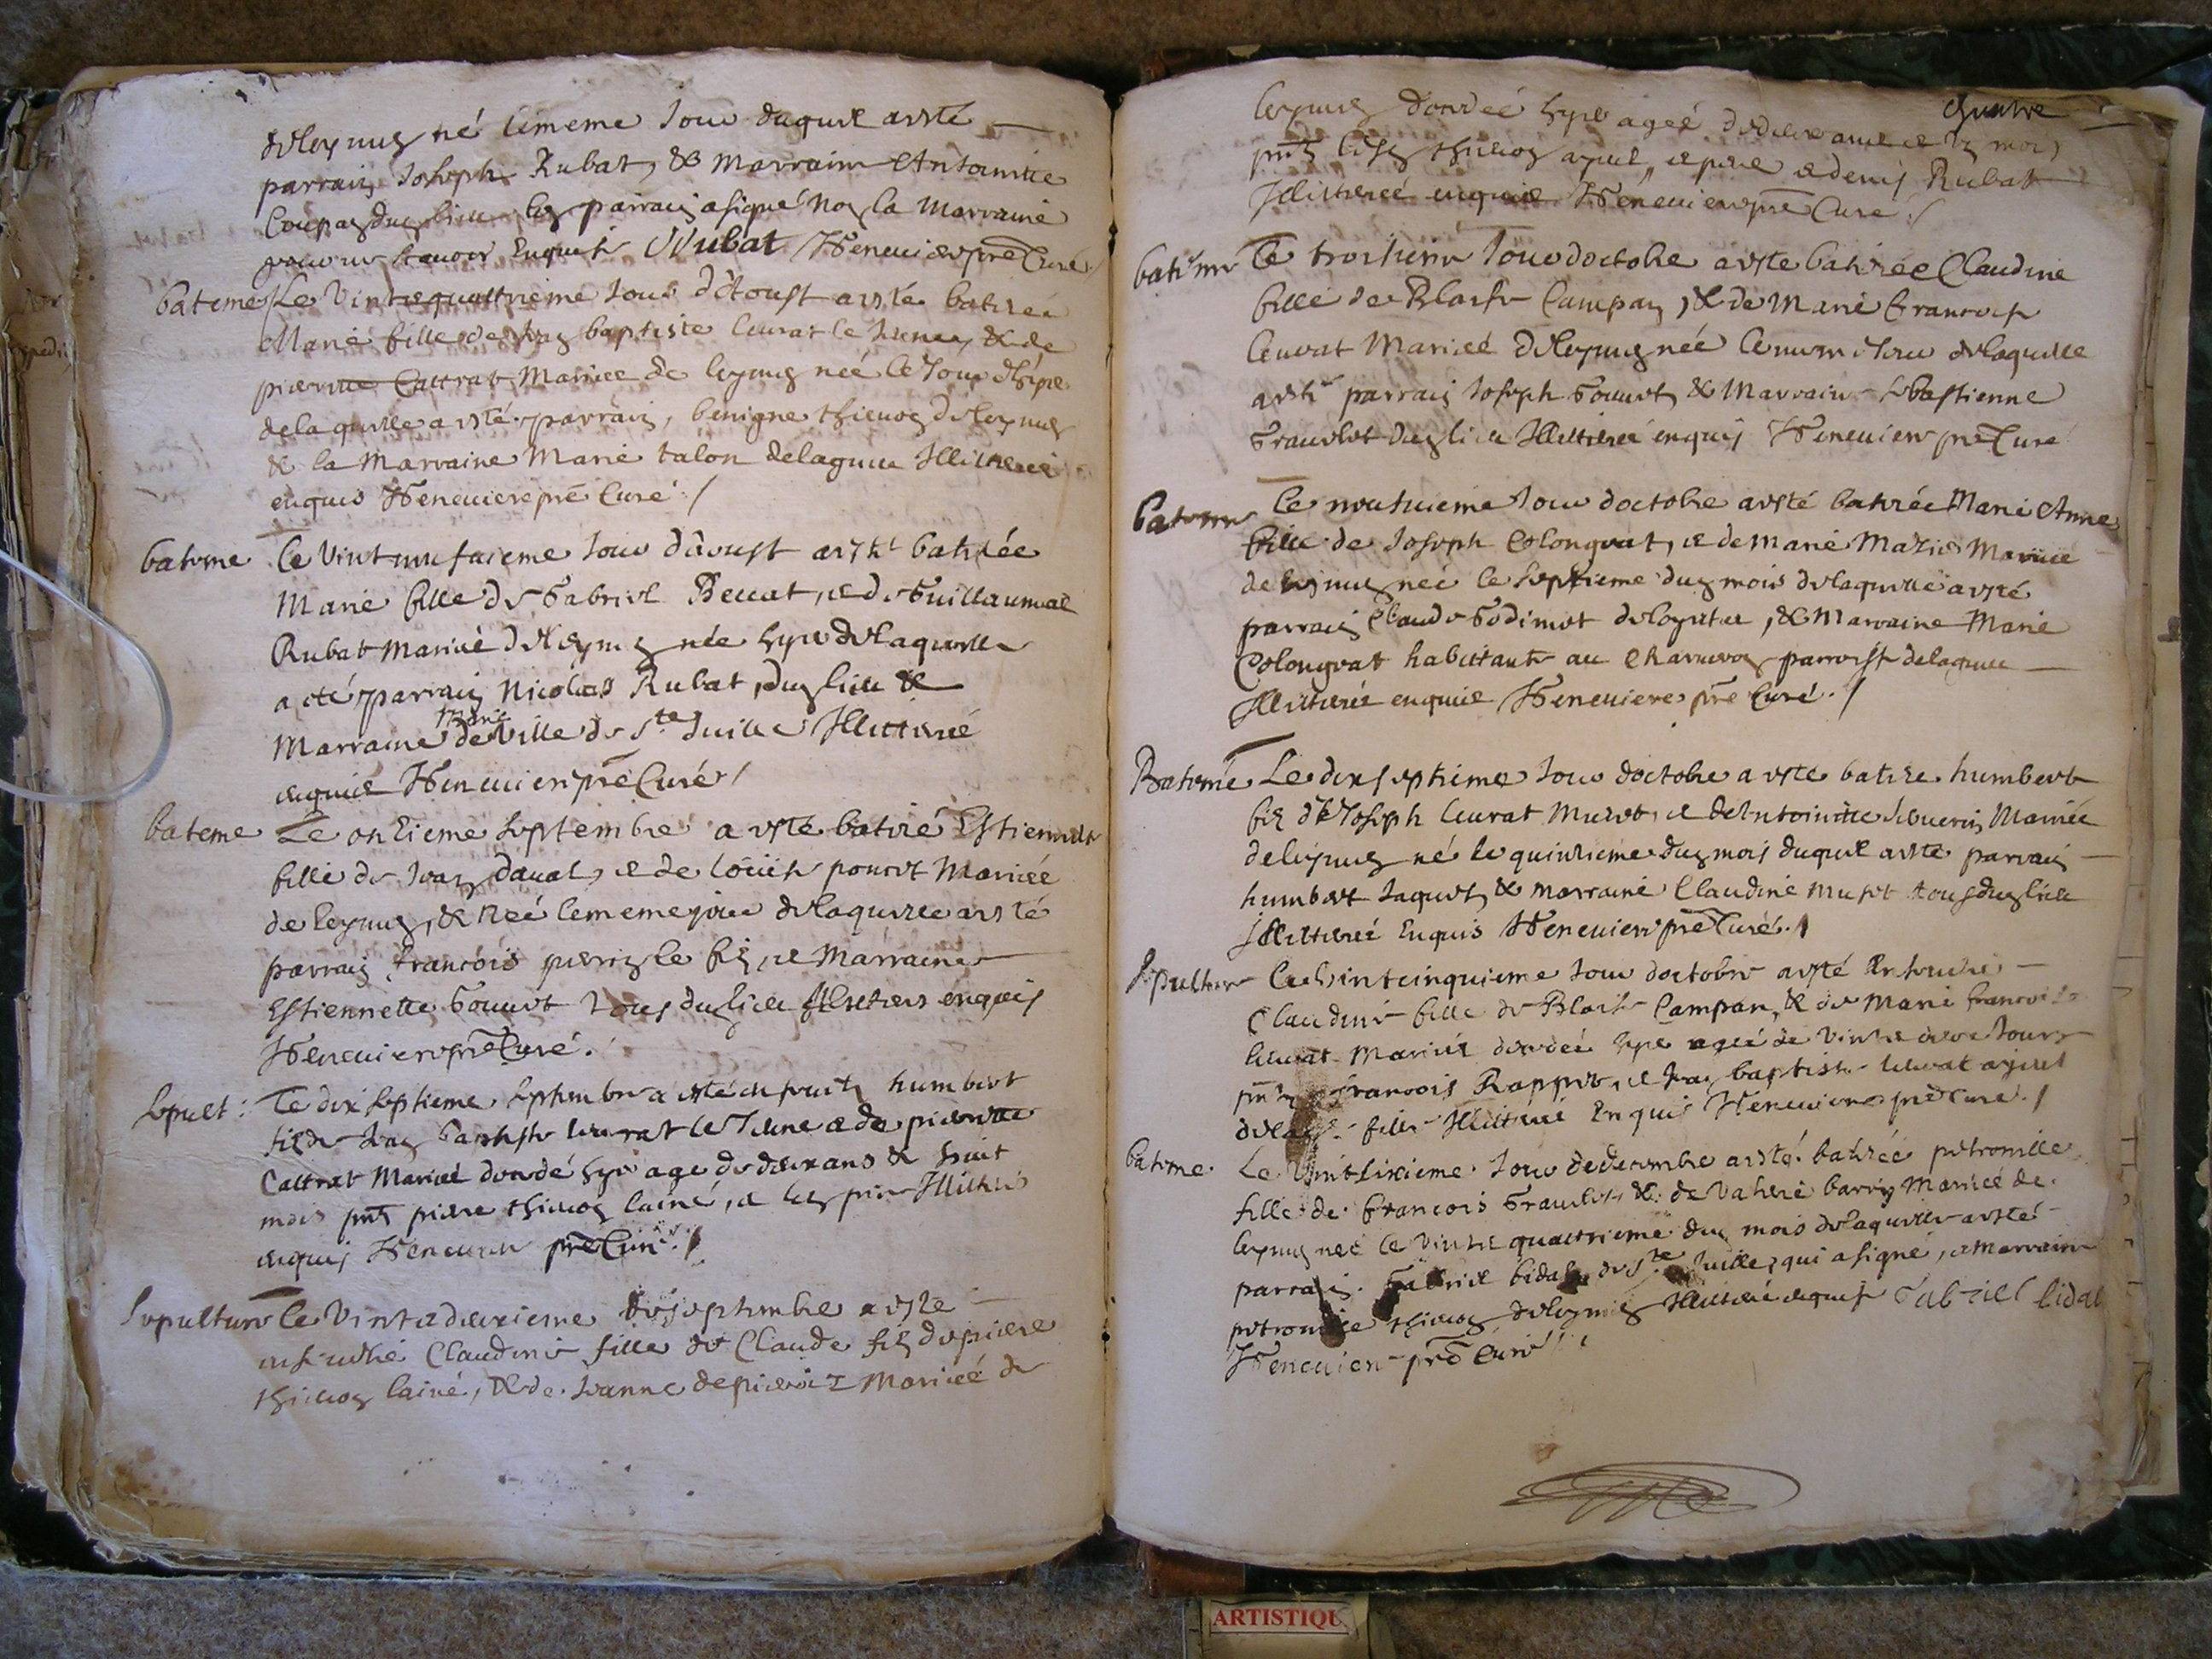 deleymeg né lememe Jour duquel aesté
parraig Joseph Rubat, & Marraine Antoinette
Coupag dug lieu leg parraig asigné Nog la Marraine
pour ne scauoir Enquise JRubat Heneuier pre Curé
bateme Le Vint quattrieme Jour d'Aoust aesté batizée
Marie fille de Jeag baptiste leurat le Jeune, & de
pierrette Cattrat Mariee de leymeg née le Jour dhyer
delaquelle aesté parraig, benigne thieuog de leymeg
& la Marraine Marie talon delagnieu Illitteré
enquis Heneuier pre Curé /
bateme Le Vint neufuieme Jour d'aoust aesté batizée
Marie fille de Gabriel Beccat, et de Guillaumae
Rubat Mariée deleymeg née hyer de laquelle
a été parraig Nicolas Rubat, dug lieu &
Marie
Marraine deVille de Ste Juille Illitteré
enquise Heneuier pre Curé /
bateme Le onzieme Septembre a esté batizé Estiennette
fille de Jeag dauat, et de loüise poncet Mariée
de leymeg, & Née lememe jour de laquelle aesté
parraig francois pierrig le fis, et Marraine
Estiennette Gouuet Tous dug lieu Illitteré enquis
Heneuier pre Curé.
Sepult: Le dix septieme septembre a esté enseueli humbert
fis de Jeag baptiste leurat le Jeune et de pierrette
Cattrat Mariée decedé hyer agé de deux ans & huit
mois pnt pierre thieuog lainé, et leg pere Illitteré
enquis Heneuier pre Curé /
Sepulture Le Vint et deuxieme de septembre a esté
enseuelie Claudine fille de Claude fis de pierre
thieuog lainé, & de Jeanne de pierre Mariée de
quatre
leymeg decedée hyer ageé de deux ans et ug mois
pnt ledg thieuog ayeul, et pere et denis Rubat
Illitteré enquise Heneuier pre Curé /
bateme Le troisieme Jour doctobre aesté batizée Claudine
fille de Blaise Campag, & de Marie francoise
leurat Marieé deleymeg née lememe Jour delaquelle
aesté parraig Joseph Gouuet & Marraine Sebastienne
Grauelot dug lieu Illitteré enquis Heneuier pre Curé
bateme Le neufuieme Jour doctobre aesté batizée Marie Anne
fille de Joseph Colongeat, et de Marie Mazie Mariée
de leymeg née le septieme dug mois de laquelle aesté
parraig Claude Godimot de loyettes, & Marraine Marie
Colongeat habittante au Charueog parroisse delagnieu
Illitteré enquise Heneuier pre Curé. /
Bateme Le dixseptieme Jour doctobre a esté batizé humbert
fis de Joseph leurat Muset et de Antoinette Seuerig Mariée
deleymeg né le quinzieme dug mois duquel aesté parraig
humbert Jaquet, & marraine Claudine Muset tous dug lieu
Illitteré Enquis Heneuier pre Curé. /
Sepulture Le Vint cinquieme Jour doctobre aesté Enseuelie
Claudine fille de Blaise Campan, & de Marie francoise
leurat Mariée decedée hyer ageé de Vint et deux Jours
pnt francois Rappet, et Jeag baptiste leurat ayeul
de lad. fille Illitteré Enquis Heneuier pre Curé. /
bateme. Le Vint sixieme Jour de decembre aesté batizée petronille
fille de francois Grauelot & de Valerie barrig Mariée de
leymeg née le Vint et quattrieme dug mois de laquelle aesté
parraig. Gabriel bidal de Ste Juille, qui asigné, et Marraine
petronille thieuog deleymeg Illitteré enquise Gabriel bidal
Heneuier pre Curé /
ARTISTIQU